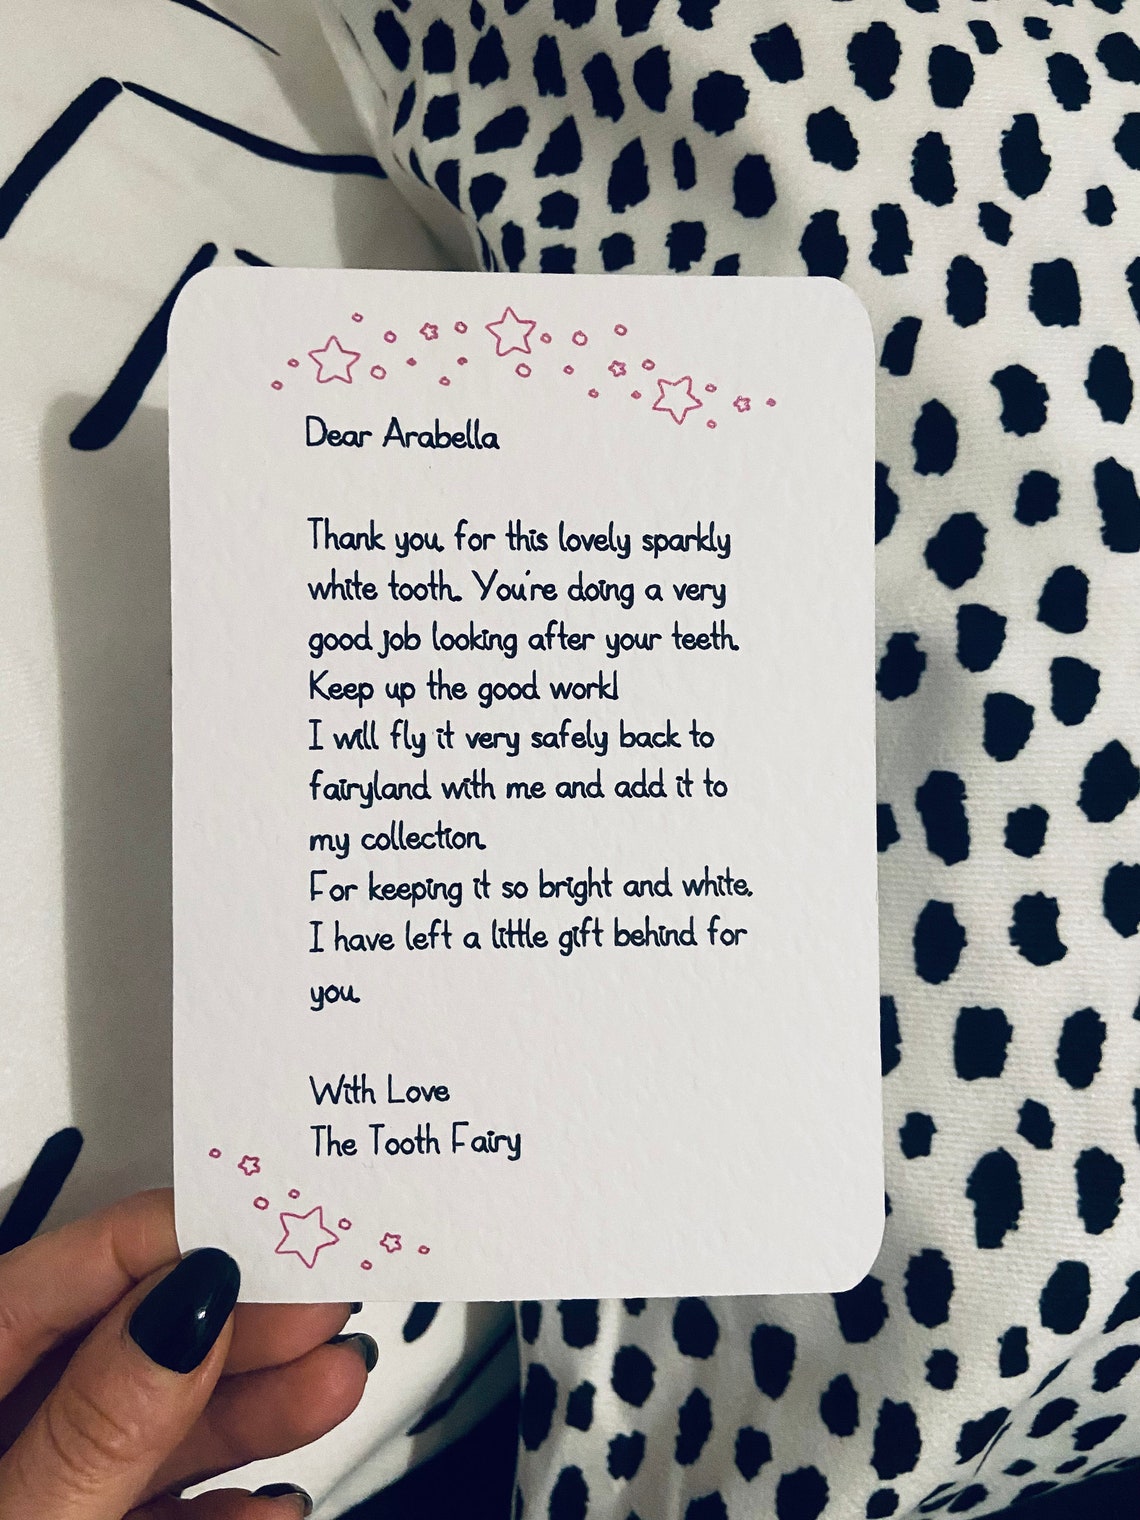 Dear Arabella
Thank you for this lovely sparkly
white tooth. You're doing a very
good job looking after your teeth.
Keep up the good work!
I will fly it very safely back to
fairyland with me and add it to
my collection.
For keeping it so bright and white.
I have left a little gift behind for
you.
With Love
The Tooth Fairy